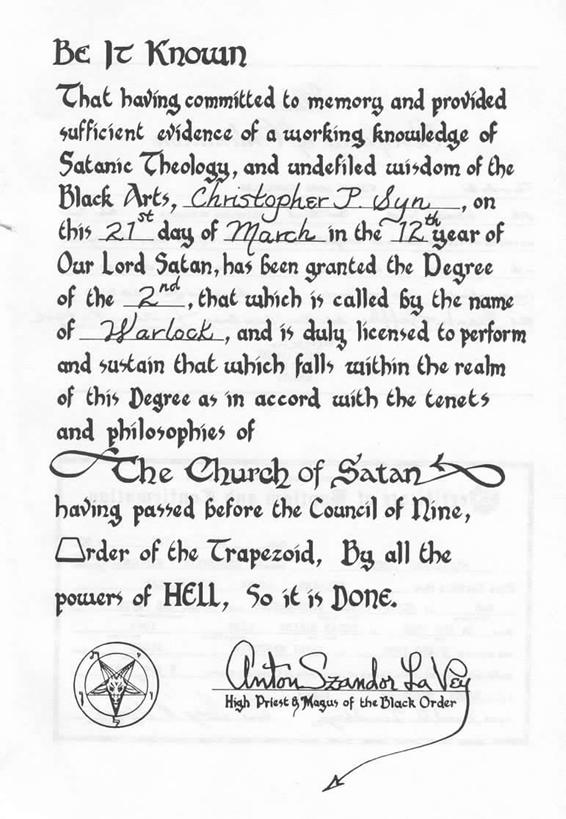 Be It Known
That having committed to memory and provided
sufficient evidence of a working knowledge of
Satanic Theology, and undefiled wisdom of the
Black Arts, Christopher P. Syn, on
this 21st day of March in the 12th year of
Our Lord Satan, has been granted the Degree
of the 2nd, that which is called by the name
of Warlock, and is duly licensed to perform
and sustain that which falls within the realm
of this Degree as in accord with the tenets
and philosophies of
The Church of Satan
having passed before the Council of Nine,
Order of the Trapezoid, By all the
powers of HELL, So it is DONE.
Anton Szandor LaVey
High Priest & Magus of the Black Order